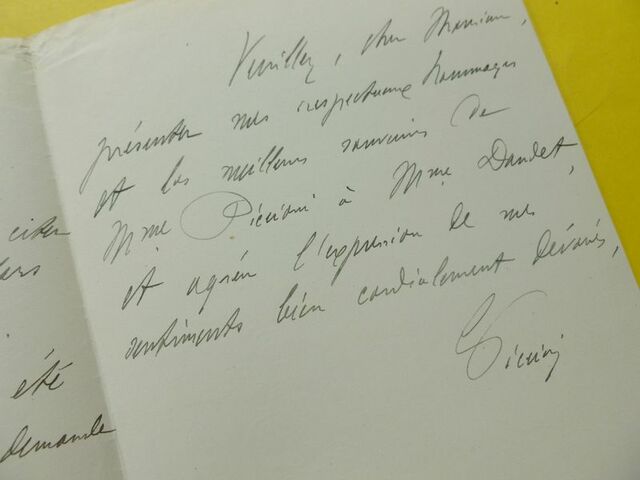 Veuillez, cher Monsieur,
présenter mes respectueux hommages
et les meilleurs souvenirs de
Mme Piccioni à Mme Daudet,
et agréer l'expression de mes
sentiments bien cordialement dévoués,
Piccioni
citer
été
demande